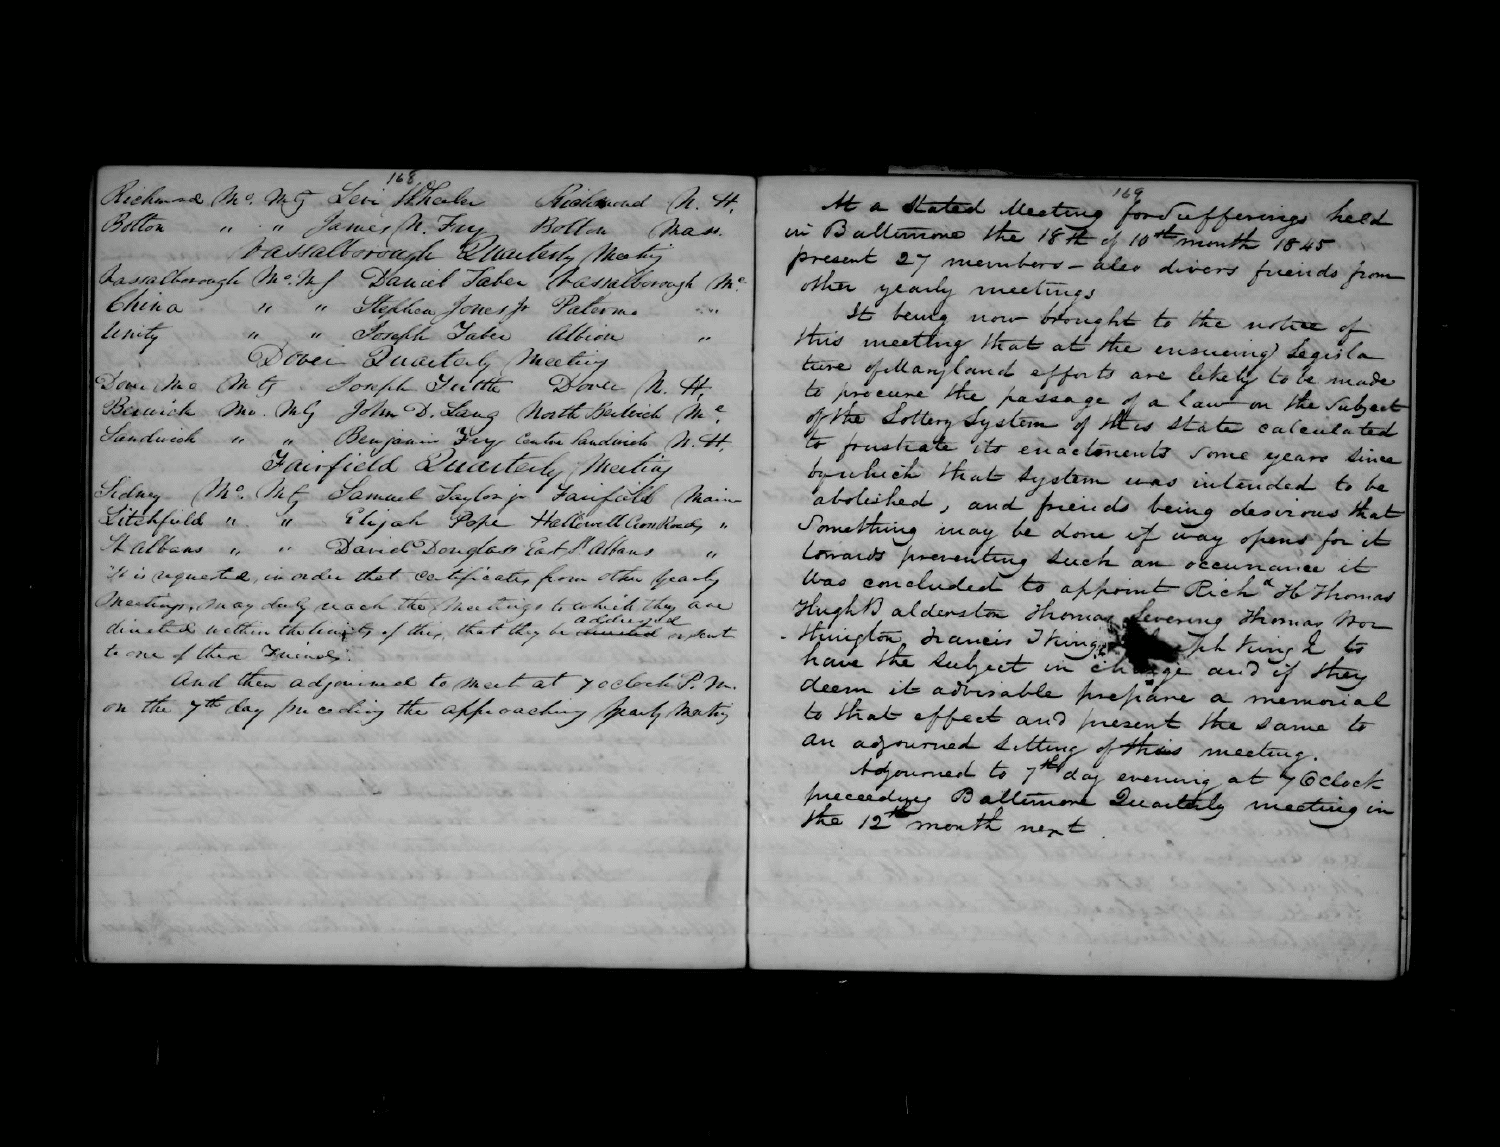 168
Richmond Mo. Mtg Levi Wheeler Richmond N. H.
Bolton " " James N. Fry Bolton Mass.
Vassalborough Quarterly Meeting
Vassalborough Mo. Mg Daniel Taber Vassalborough Me.
China " " Stephen Jones Jr Palermo "
Unity " " Joseph Taber Albion "
Dover Quarterly Meeting
Dover Mo Mtg Joseph Tuttle Dover N. H.
Berwick Mo. Mtg John D. Lang North Berwick Me.
Sandwich " " Benjamin Fry Centre Sandwich N. H.
Fairfield Quarterly Meeting
Sidney Mo. Mtg Samuel Taylor jr Fairfield Main
Litchfield " " Elijah Pope Hallowell Cross Roads "
St Albans " " David Douglass East St Albans "
"It is requested, in order that certificates from other Yearly
Meetings, may duly reach the Meetings to which they are
directed within the limits of this, that they be directed addressed or sent
to one of these Friends."
And then adjourned to meet at 7 oclock P. M.
on the 7th day preceding the approaching Yearly Meeting
169
At a Stated Meeting for Sufferings held
in Baltimore the 18th of 10th month 1845
present 27 members - also divers friends from
other yearly meetings
It being now brought to the notice of
this meeting that at the ensueing Legisla
ture of Maryland efforts are likely to be made
to procure the passage of a law on the Subject
of the Lottery System of this State calculated
to frustrate its enactments some years since
by which that system was intended to be
abolished, and friends being desirous that
Something may be done if way opens for it
towards preventing such an occurrance it
was concluded to appoint Richd H Thomas
Hugh Balderston Thomas Levering Thomas Wor
-thington Francis T King Joseph King Jr to
have the subject in charge and if they
deem it advisable prepare a memorial
to that effect and present the same to
an adjourned sitting of this meeting.
Adjourned to 7th day evening at 7 Oclock
preceeding Baltimore Quarterly meeting in
the 12th month next.